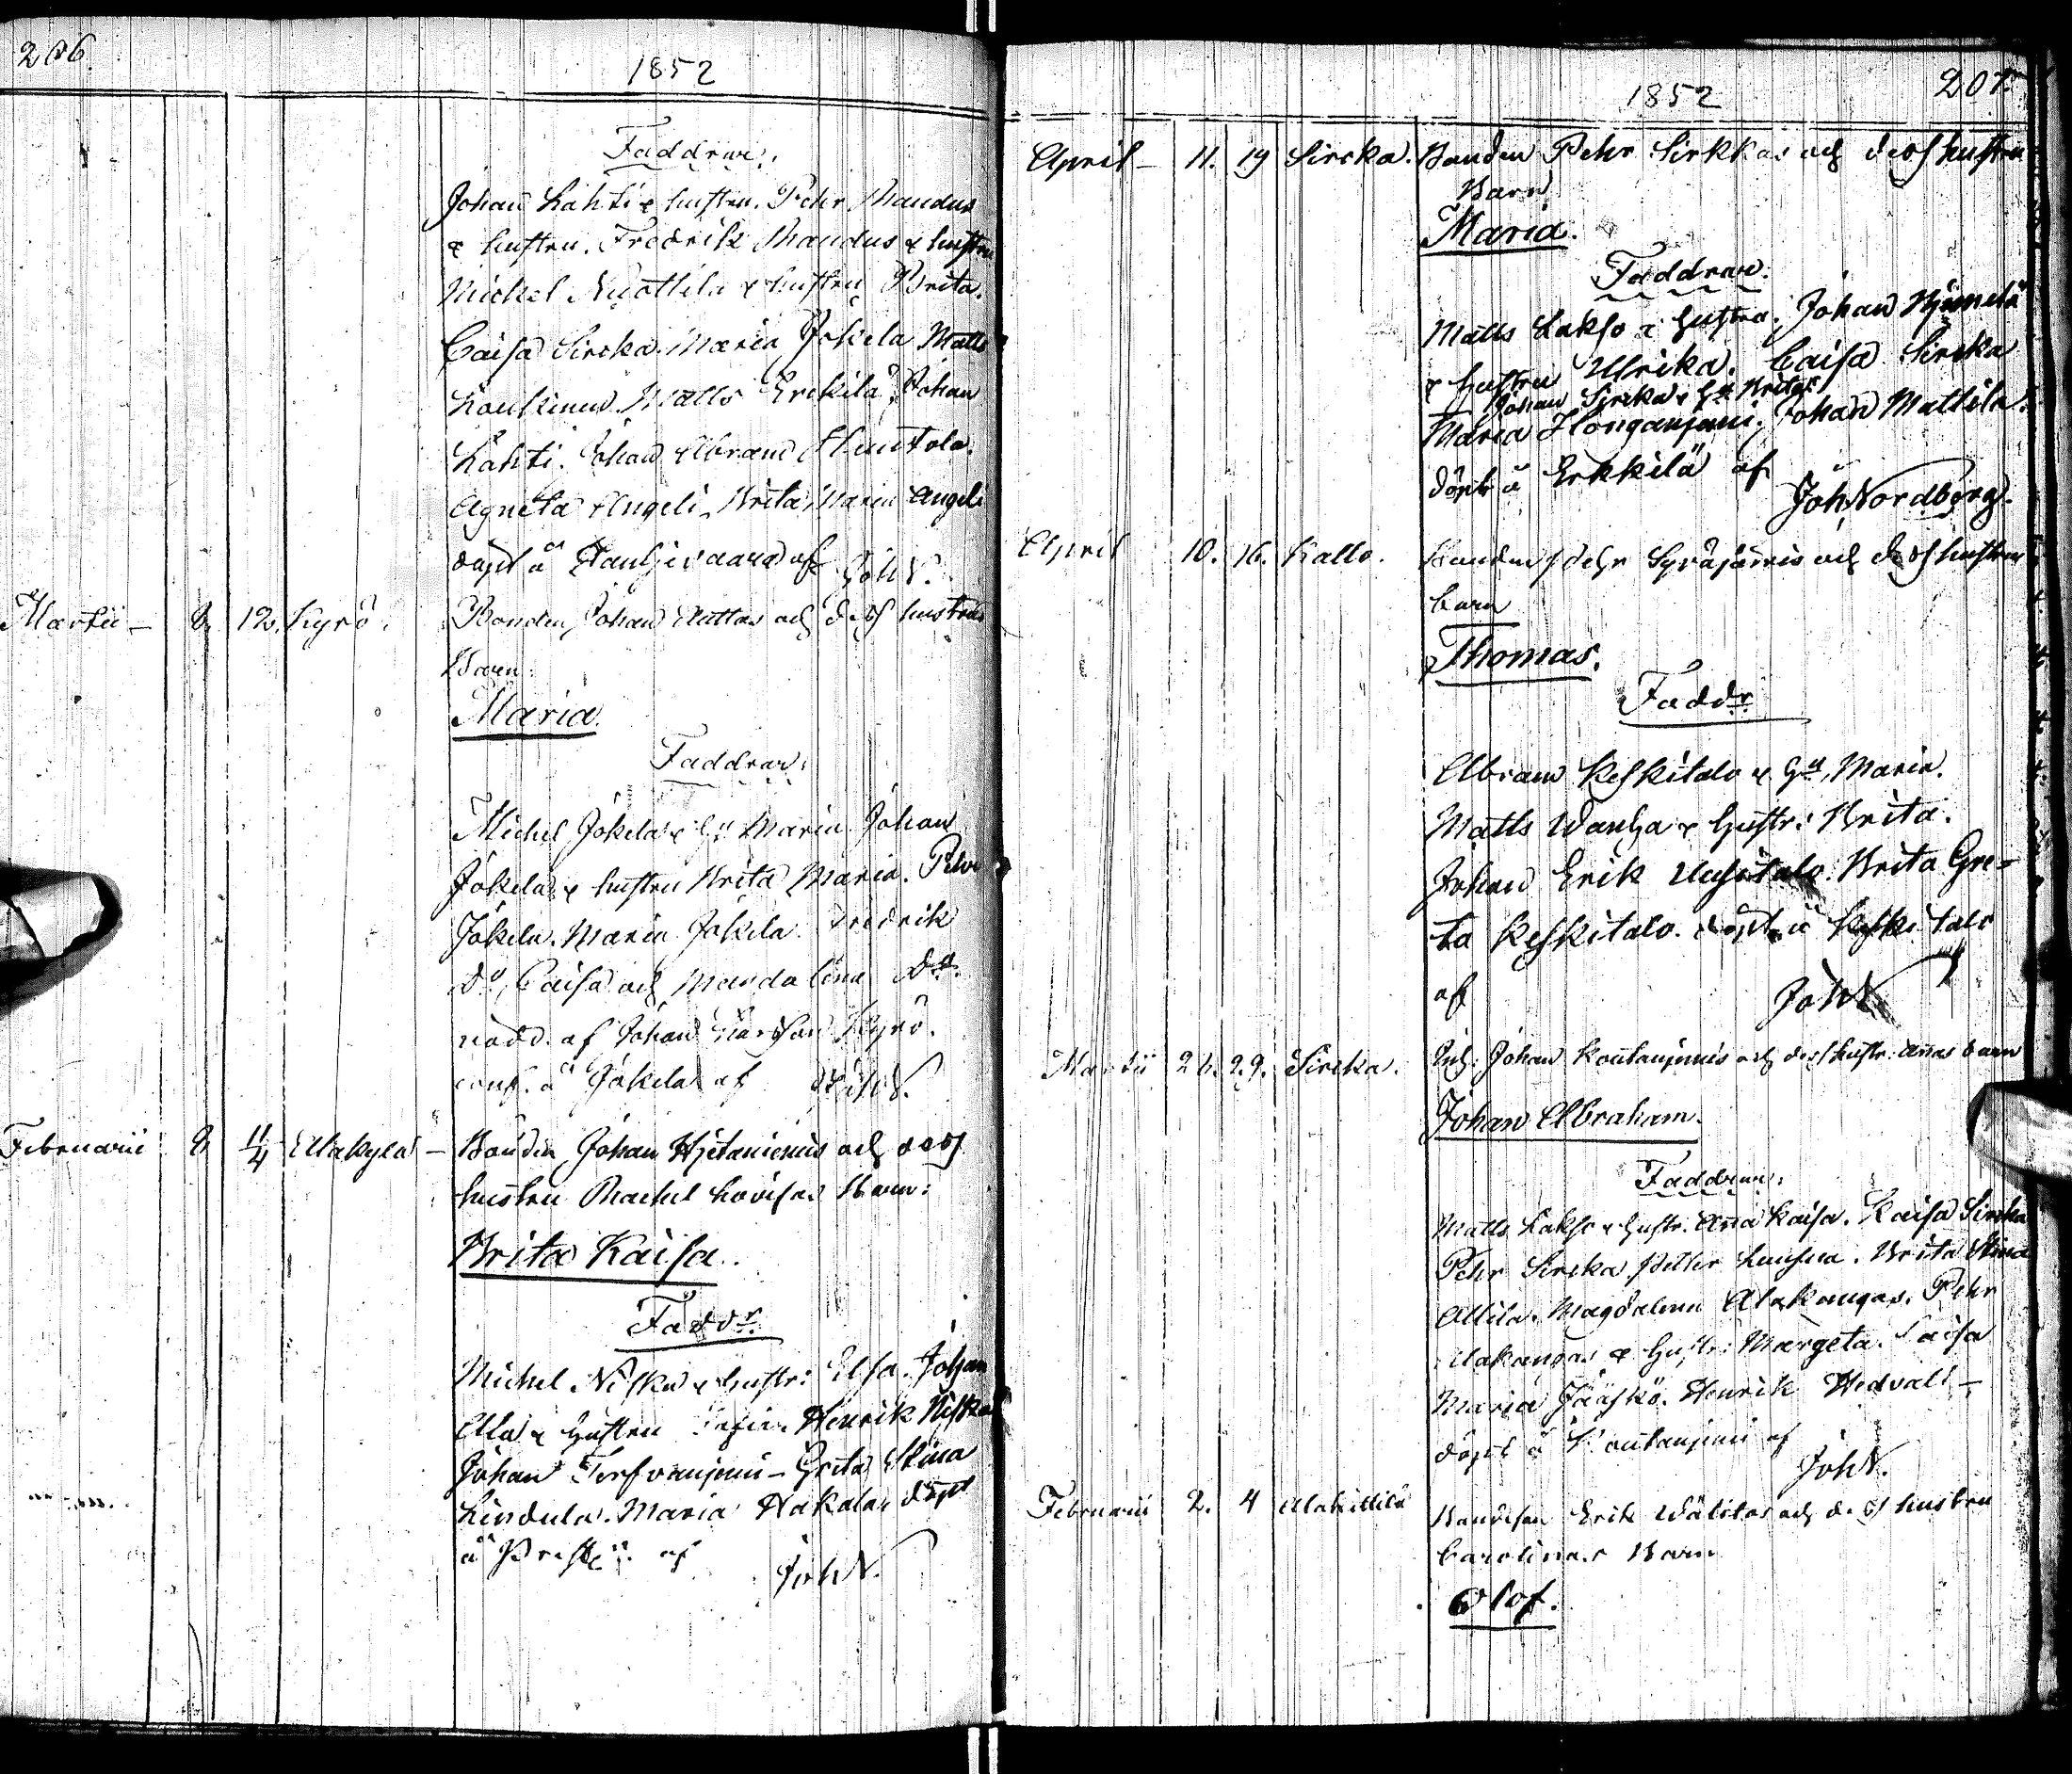 206.
1852
Faddrar.
Johan Lahti & hustru. Pehr Mandus
& hustru. Fredrik Mandus & hustru
Michel Nuottila & hustru Brita.
Caisa Sircka. Maria Jokela Matts
Matts Erckilä, Johan
Lahti. Johan Abram
Agneta Angeli, Brita Maria Angeli
döpt å af Joh N.
Martii - 8 12. Kyrö. Bonden Johan Auttos och dess hustrus
Barn:
Maria.
Faddrar:
Michel Jokela & Hu Maria Johan
Jokela & hustru Brita Maria. Petter
Jokela. Maria Jokela. Fredrik
Do, Caisa och Mandalina Do.
nödd. af Johan Kyrö.
conf. å Jokela af Joh N.
Februarii 8 11/4 Alakylä - Bonden Johan Hjetaniemis och dess
hustru Rachel Lovisas Barn:
Brita Kaisa.
Faddr.
Michel Niska & hustr: Elsa. Johan
Alla & hustru Henrik Niska
Johan - Greta Stina
Lindula. Maria Hakala. döpt
å af Joh N.
207.
1852
April - 11. 19 Sircka. Bonden Pehr Sirkkas och dess hustru
Barn
Maria.
Faddrar.
Matts Lakso & hustru. Johan
& hustru Ulrika. Caisa Sircka
Johan Sircka & Hu Brita
Maria Honganjemi. Johan Mattila.
döpt å Erkkilä af
Joh Nordberg.
April 10. 16. Kallo. Bonden Pehr Syväjärvis och dess hustru
barn
Thomas.
Faddr
Abram Keskitalo & Hu, Maria.
Matts Wanha & hustr: Brita.
Johan Erik Uusitalo. Brita Gre=
ta Keskitalo. döpt å Keskitalo
af Joh N
Martii 26. 29. Sircka. Inh: Johan Koutanjemis och dess hustr: Annas barn
Johan Abraham.
Faddrar.
Matts Lakso & hustr. Anna Kaisa. Kaisa Sircka
Pehr Sircka, Petter Brita Stina
Attila. Magdalena Alakangas. Pehr
Alakangas & hustr: Margeta. Caisa
Maria Jääskö. Henrik Hedvall -
döpt å Koutanjemi af
Joh N.
Februarii 2. 4 Alakittilä Bondeson Erik Wälitas och dess hustru
Carolinas Barn
Olof.